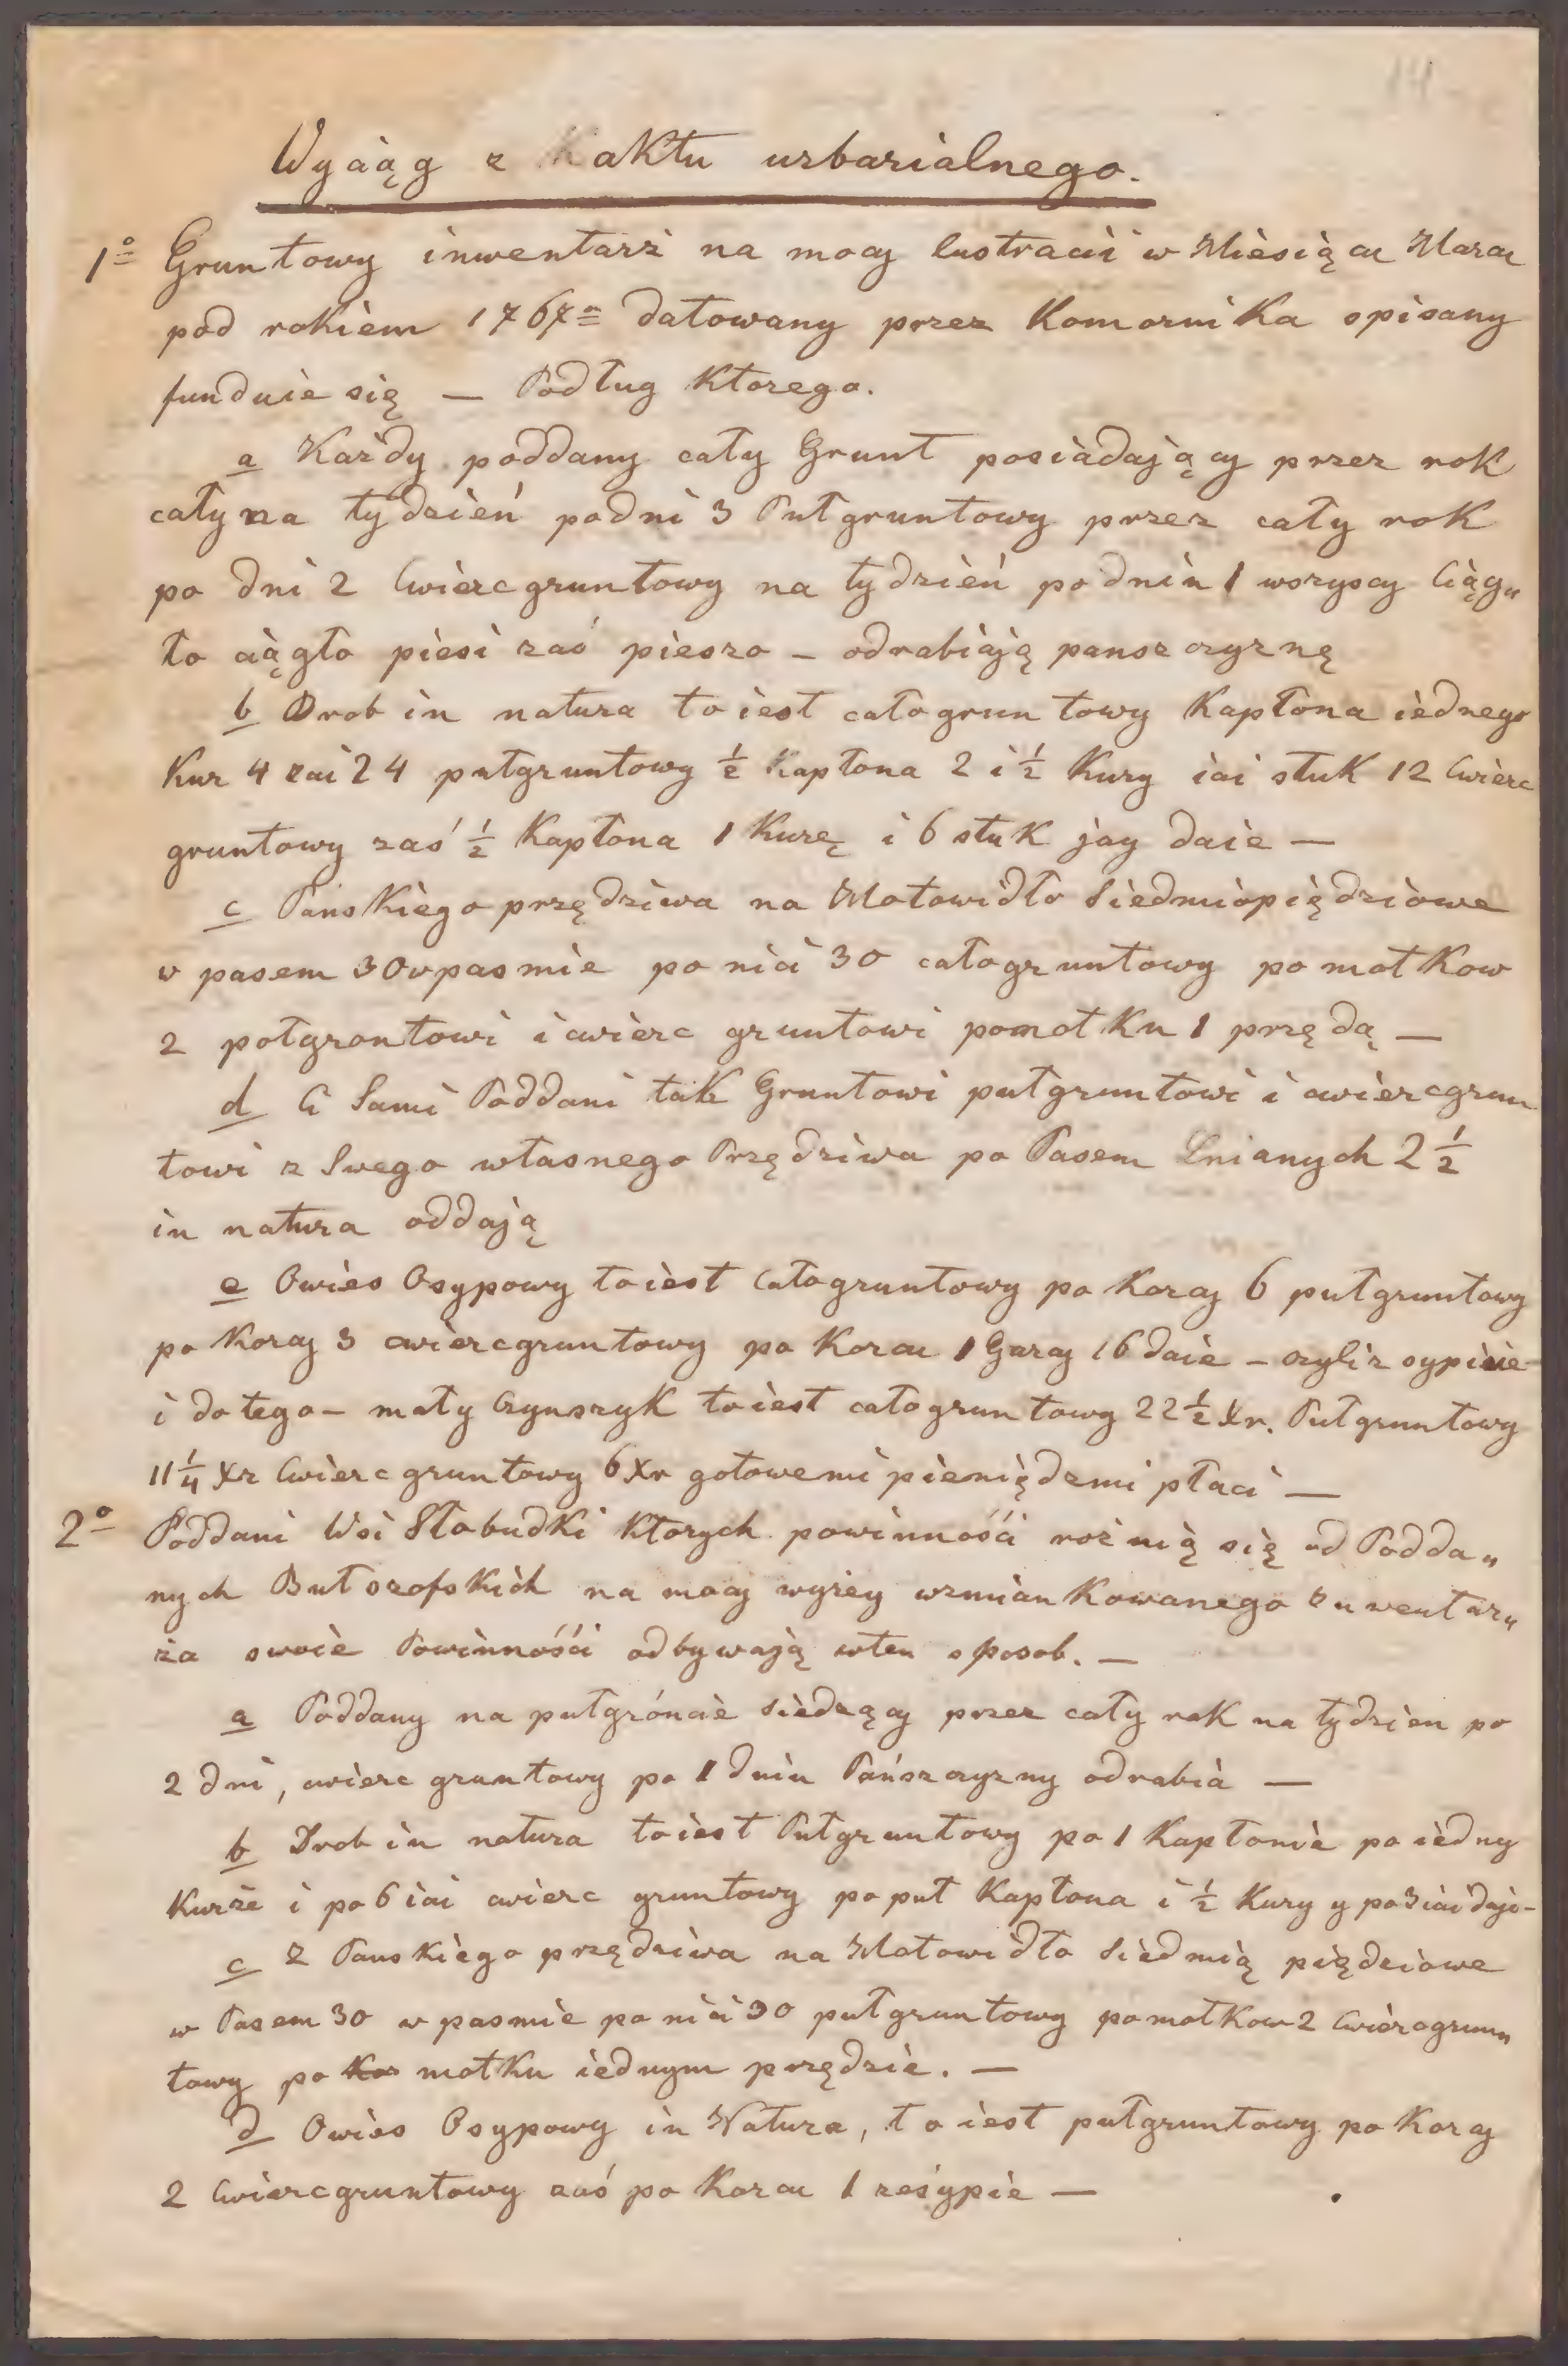 14
Wyciąg z aktu urbarialnego.
1º Gruntowy inwentarz na mocy lustracii w Miesiącu Marcu
pod rokiem 1767º datowany przez Komornika spisany
funduie się — Podług Ktorego.
a Każdy poddany cały Grunt posiadaiący przez rok
cały na tydzień podni 3 Puł gruntowy przez cały rok
po dni 2 Cwiercgruntowy na tydzień po dniu 1 wszyscy Ciąg„
ło ciągło piesi zaś pieszo – odrabiają panszczyznę
b Drob in natura to iest całogruntowy Kapłona iednego
Kur 4 iai 24 pułgruntowy ½ Kapłona 2 i ½ Kury iai stuk 12 Cwierc
gruntowy zaś ½ Kapłona 1 Kurę i 6 stuk jay daie —
c Panskiego przędziwa na Motowidło Siedmiopiędziowe
w pasem 30 w pasmie po nici 30 całogruntowy po motkow
2 połgrontowi i cwierc gruntowi po motku 1 przędą —
d Ci Sami Poddani tak Gruntowi pułgruntowi i cwiercgrun
towi z Swego własnego Przędziwa po Pasem Lnianych 2 ½
in natura oddają
e Owies Osypowy to iest Całogruntowy po Korcy 6 pułgruntowy
po Korcy 3 cwiercgruntowy po Korcu 1 Garcy 16 daie – czyli zsypuie
i do tego – mały Czynszyk to iest całogruntowy 22 ½ Xr. Pułgruntowy
11 ¼ Xr Cwierc gruntowy 6 Xr gotowemi pieniędzmi płaci —
2º Poddani Wsi Słobudki Ktorych powinności rożnią się od Podda„
nych Butszofskich na mocy wyżey wzmiankowanego Inwentarz„
ża swoie Powinności odbywają wten sposob. —
a Poddany na pułgróncie siedzący przez cały rok na tydzien po
2 dni, cwierc gruntowy po 1 dniu Pańszczyzny odrabia —
b Drob in natura to iest Pułgruntowy po 1 Kapłonie po iedny
Kurze i po 6 iai cwierc gruntowy po puł Kapłona i ½ Kury y po 3 iai daje –
c Z Panskiego przędziwa na Motowidło Siedmią piędziowe
w Pasem 30 w pasmie po nici 30 pułgruntowy po motkow 2 Cwiercgrun„
towy po Kor motku iednym przędzie. —
d Owies Osypowy in Natura, to iest pułgruntowy po Korcy
2 Cwiercgruntowy zaś po Korcu 1 zesypie —